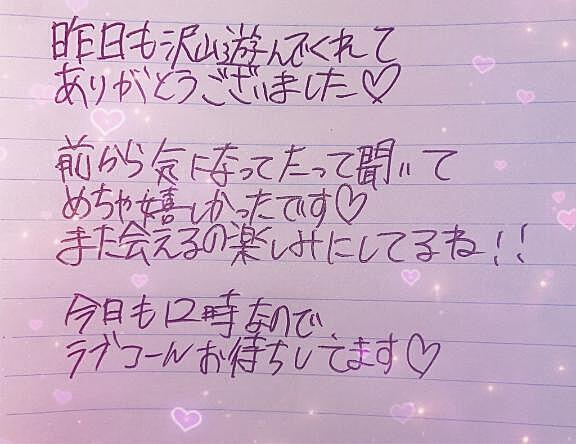 昨日も沢山遊んでくれて
ありがとうございました♡
前から気になってたって聞いて
めちゃ嬉しかったです♡
また会えるの楽しみにしてるね!!
今日も12時なので、
ラブコールお待ちしてます♡